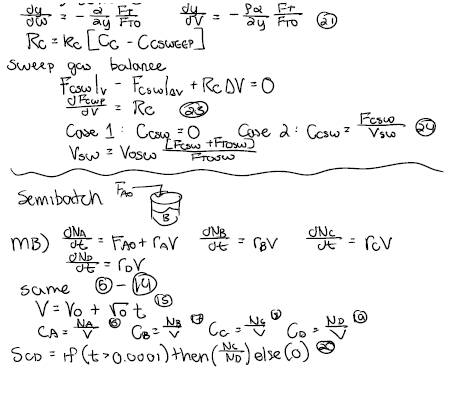 dy/dW = - α/2y FT/FT0    dy/dV = - ρα/2y FT/FT0 (21)
Rc = kc [Cc - CcSWEEP]
Sweep gas balance
Fcsw|v - Fcsw|ΔV + Rc ΔV = 0
dFcwp/dV = Rc (23)
Case 1: Ccsw = 0    Case 2: Ccsw = Fcsw/Vsw (24)
Vsw = Vosw [Fcsw + FTosw]/FTosw
Semibatch FA0 B
MB) dNA/dt = FA0 + rAV    dNB/dt = rBV    dNC/dt = rCV
dND/dt = rDV
same (5) - (14)
V = V0 + v0 t (15)
CA = NA/V    CB = NB/V    CC = NC/V    CD = ND/V
SCD = if (t > 0.0001) then (NC/ND) else (0)